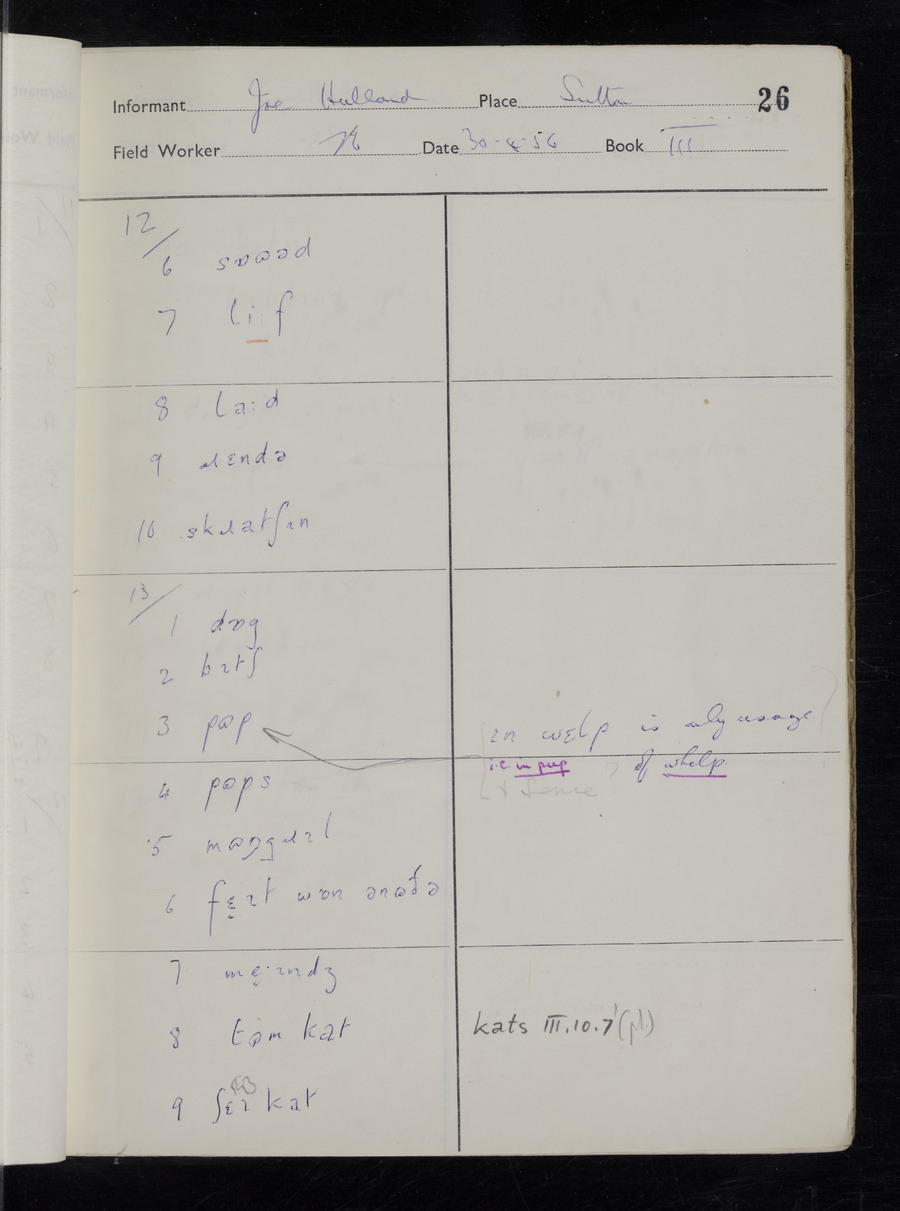 Informant Joe Hulland Place Sutton 26
Field Worker Date 30-4-56 Book III
12/
6 sɒwəd
7 li:f
8 la:d
9 ɹɛndə
10 skɹatʃɪn
13/
1 dɒg
2 bɪtʃ
3 pəp
ɪn wɛlp is only usage
i.e. in pup ? of whelp.
+ sense
4 pəps
5 məŋgɹɪl
6 fɛɪt wɒn ənəðə
7 mɛ:ɪndʒ
8 tɒm kat
kats III.10.7 (pl)
9 ʃɛɪ kat